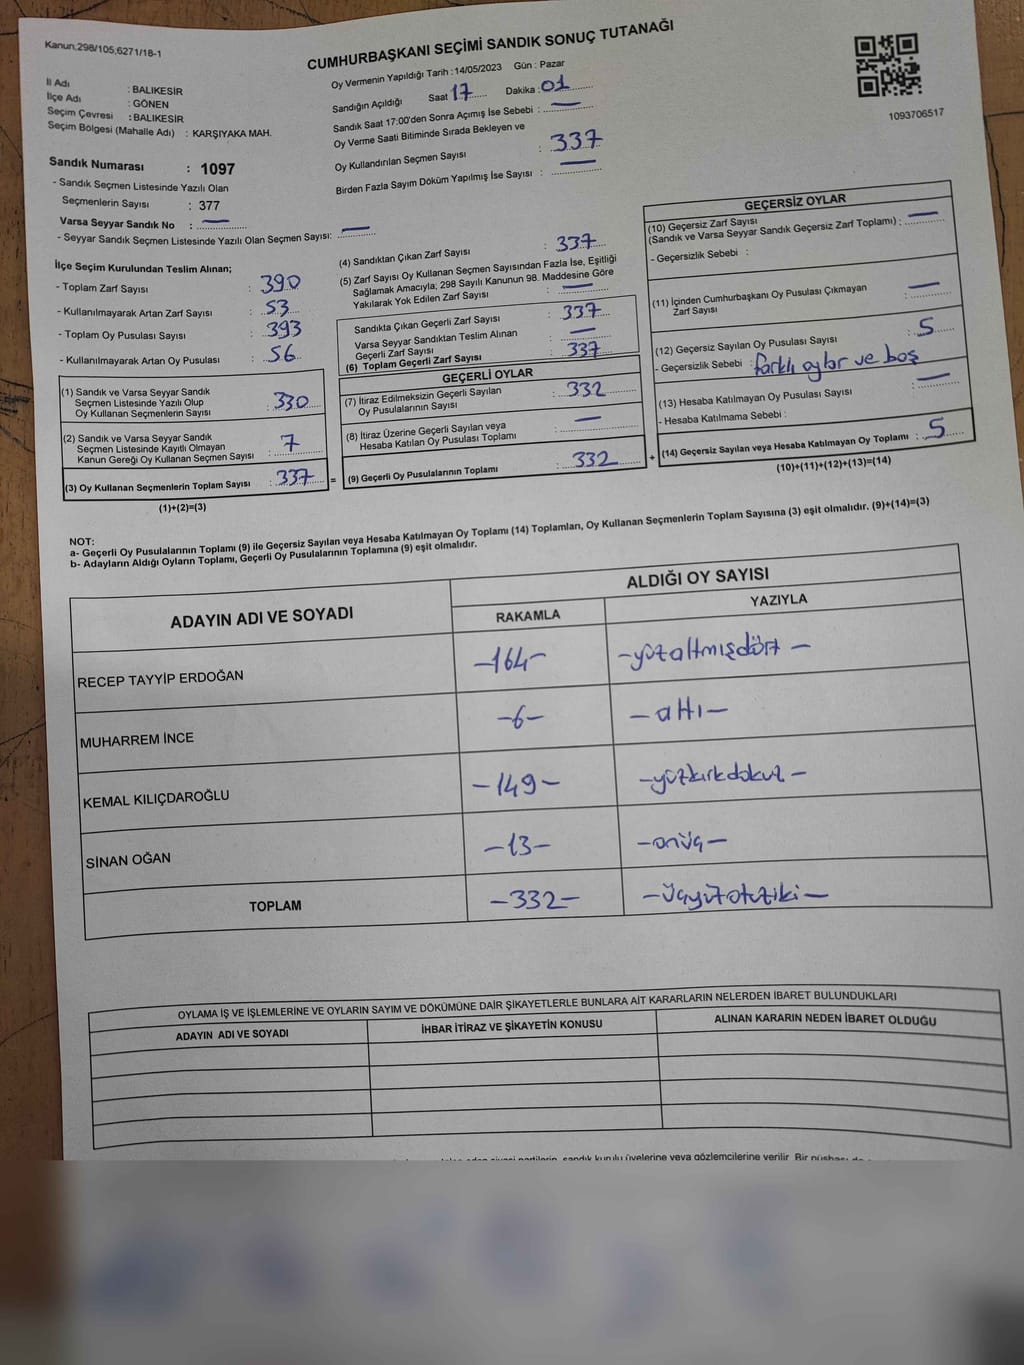 Kanun,298/105;6271/18-1
CUMHURBAŞKANI SEÇİMİ SANDIK SONUÇ TUTANAĞI
Oy Vermenin Yapıldığı Tarih : 14/05/2023 Gün : Pazar
İl Adı : BALIKESİR
İlçe Adı : GÖNEN
Seçim Çevresi : BALIKESİR
Seçim Bölgesi (Mahalle Adı) : KARŞIYAKA MAH.
Sandığın Açıldığı Saat 17 Dakika : 01
Sandık Saat 17:00'den Sonra Açımış İse Sebebi : —
Oy Verme Saati Bitiminde Sırada Bekleyen ve
Oy Kullandırılan Seçmen Sayısı : 337
Birden Fazla Sayım Döküm Yapılmış İse Sayısı : —
1093706517
Sandık Numarası : 1097
- Sandık Seçmen Listesinde Yazılı Olan
Seçmenlerin Sayısı : 377
Varsa Seyyar Sandık No : —
- Seyyar Sandık Seçmen Listesinde Yazılı Olan Seçmen Sayısı: —
İlçe Seçim Kurulundan Teslim Alınan;
- Toplam Zarf Sayısı : 390
- Kullanılmayarak Artan Zarf Sayısı : 53
- Toplam Oy Pusulası Sayısı : 393
- Kullanılmayarak Artan Oy Pusulası : 56
(1) Sandık ve Varsa Seyyar Sandık
Seçmen Listesinde Yazılı Olup
Oy Kullanan Seçmenlerin Sayısı : 330
(2) Sandık ve Varsa Seyyar Sandık
Seçmen Listesinde Kayıtlı Olmayan
Kanun Gereği Oy Kullanan Seçmen Sayısı : 7
(3) Oy Kullanan Seçmenlerin Toplam Sayısı : 337
(1)+(2)=(3)
(4) Sandıktan Çıkan Zarf Sayısı : 337
(5) Zarf Sayısı Oy Kullanan Seçmen Sayısından Fazla İse, Eşitliği
Sağlamak Amacıyla; 298 Sayılı Kanunun 98. Maddesine Göre
Yakılarak Yok Edilen Zarf Sayısı : —
Sandıkta Çıkan Geçerli Zarf Sayısı : 337
Varsa Seyyar Sandıktan Teslim Alınan
Geçerli Zarf Sayısı : —
(6) Toplam Geçerli Zarf Sayısı : 337
GEÇERLİ OYLAR
(7) İtiraz Edilmeksizin Geçerli Sayılan
Oy Pusulalarının Sayısı : 332
(8) İtiraz Üzerine Geçerli Sayılan veya
Hesaba Katılan Oy Pusulası Toplamı : —
= (9) Geçerli Oy Pusulalarının Toplamı : 332 +
GEÇERSİZ OYLAR
(10) Geçersiz Zarf Sayısı
(Sandık ve Varsa Seyyar Sandık Geçersiz Zarf Toplamı) : —
- Geçersizlik Sebebi :
(11) İçinden Cumhurbaşkanı Oy Pusulası Çıkmayan
Zarf Sayısı : —
(12) Geçersiz Sayılan Oy Pusulası Sayısı : 5
- Geçersizlik Sebebi : farklı oylar ve boş
(13) Hesaba Katılmayan Oy Pusulası Sayısı : —
- Hesaba Katılmama Sebebi :
(14) Geçersiz Sayılan veya Hesaba Katılmayan Oy Toplamı : 5
(10)+(11)+(12)+(13)=(14)
NOT:
a- Geçerli Oy Pusulalarının Toplamı (9) ile Geçersiz Sayılan veya Hesaba Katılmayan Oy Toplamı (14) Toplamları, Oy Kullanan Seçmenlerin Toplam Sayısına (3) eşit olmalıdır. (9)+(14)=(3)
b- Adayların Aldığı Oyların Toplamı, Geçerli Oy Pusulalarının Toplamına (9) eşit olmalıdır.
ADAYIN ADI VE SOYADI ALDIĞI OY SAYISI
RAKAMLA YAZIYLA
RECEP TAYYİP ERDOĞAN -164- -yüzaltmışdört-
MUHARREM İNCE -6- -altı-
KEMAL KILIÇDAROĞLU -149- -yüzkırkdokuz-
SİNAN OĞAN -13- -onüç-
TOPLAM -332- -üçyüzotuziki-
OYLAMA İŞ VE İŞLEMLERİNE VE OYLARIN SAYIM VE DÖKÜMÜNE DAİR ŞİKAYETLERLE BUNLARA AİT KARARLARIN NELERDEN İBARET BULUNDUKLARI
ADAYIN ADI VE SOYADI İHBAR İTİRAZ VE ŞİKAYETİN KONUSU ALINAN KARARIN NEDEN İBARET OLDUĞU
siyasi partilerin, sandık kurulu üyelerine veya gözlemcilerine verilir. Bir